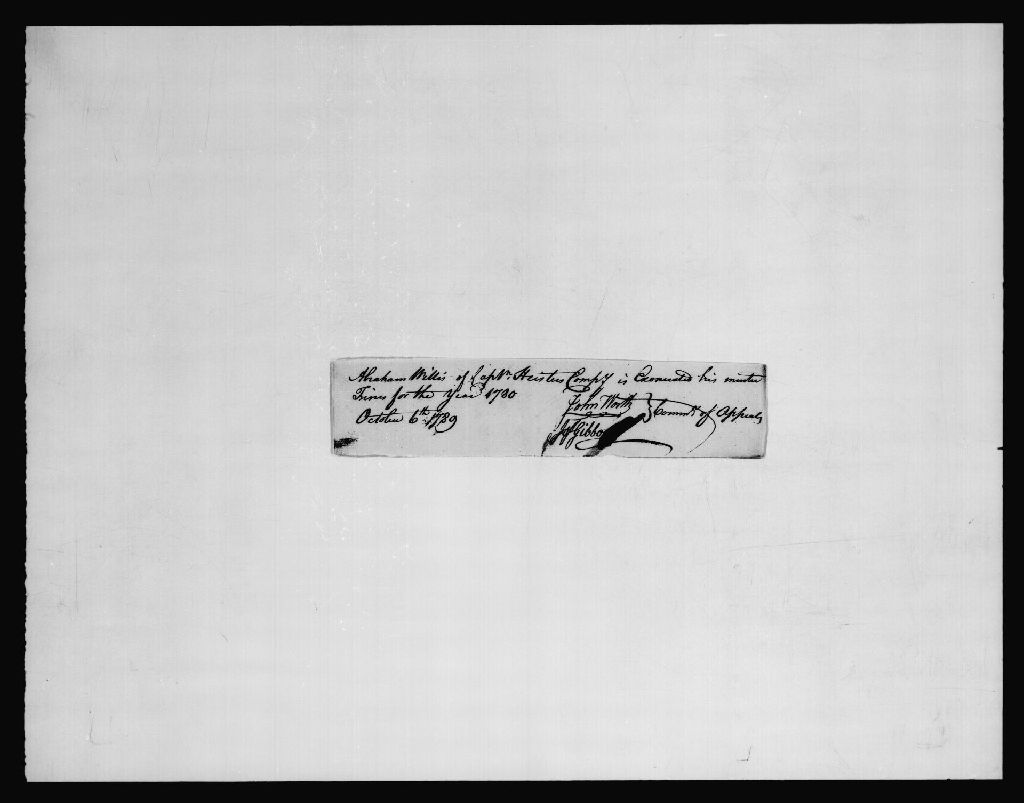 Abraham Willis of Capt. Heisters Compy is Exonerated his muster
Fines for the Year 1780
October 6th 1789
John Worth
Js Gibbons
Commrs of Appeals